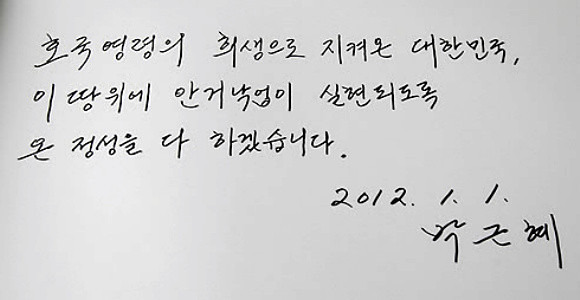 호국영령의 희생으로 지켜온 대한민국,
이 땅위에 안거낙업이 실현되도록
온 정성을 다 하겠습니다.
2012. 1. 1.
박근혜